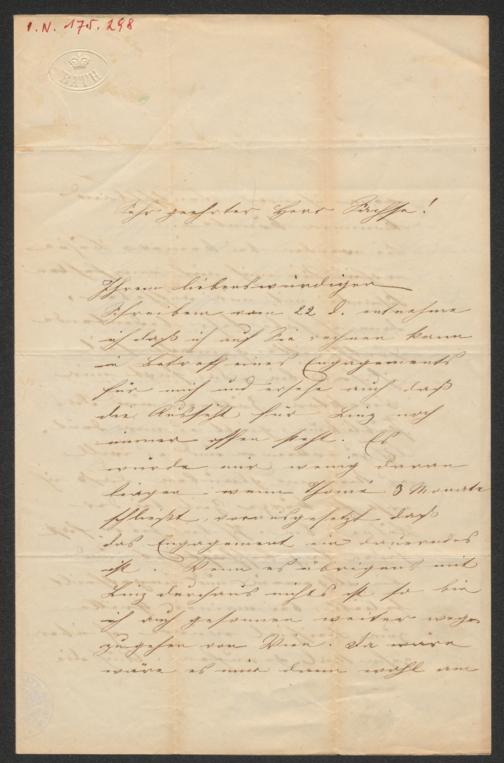 I.N. 175.298
BATH
Sehr geehrter Herr Sachse!
Ihrem liebenswürdigen
Schreiben vom 22 d. entnehme
ich daß ich auf Sie rechnen kann
in Betreff eines Engagements
für mich und ersehe auch daß
die Aussicht für Linz noch
immer offen steht. Es
würde mir wenig daran
liegen wenn Thomé 3 Monate
schließt, vorausgesetzt daß
das Engagement ein dauerndes
ist. Wenn es übrigens mit
Linz durchaus nichts ist so bin
ich auch gesonnen weiter weg
zugehen von Wien. Da wäre
wäre es mir dann wohl am